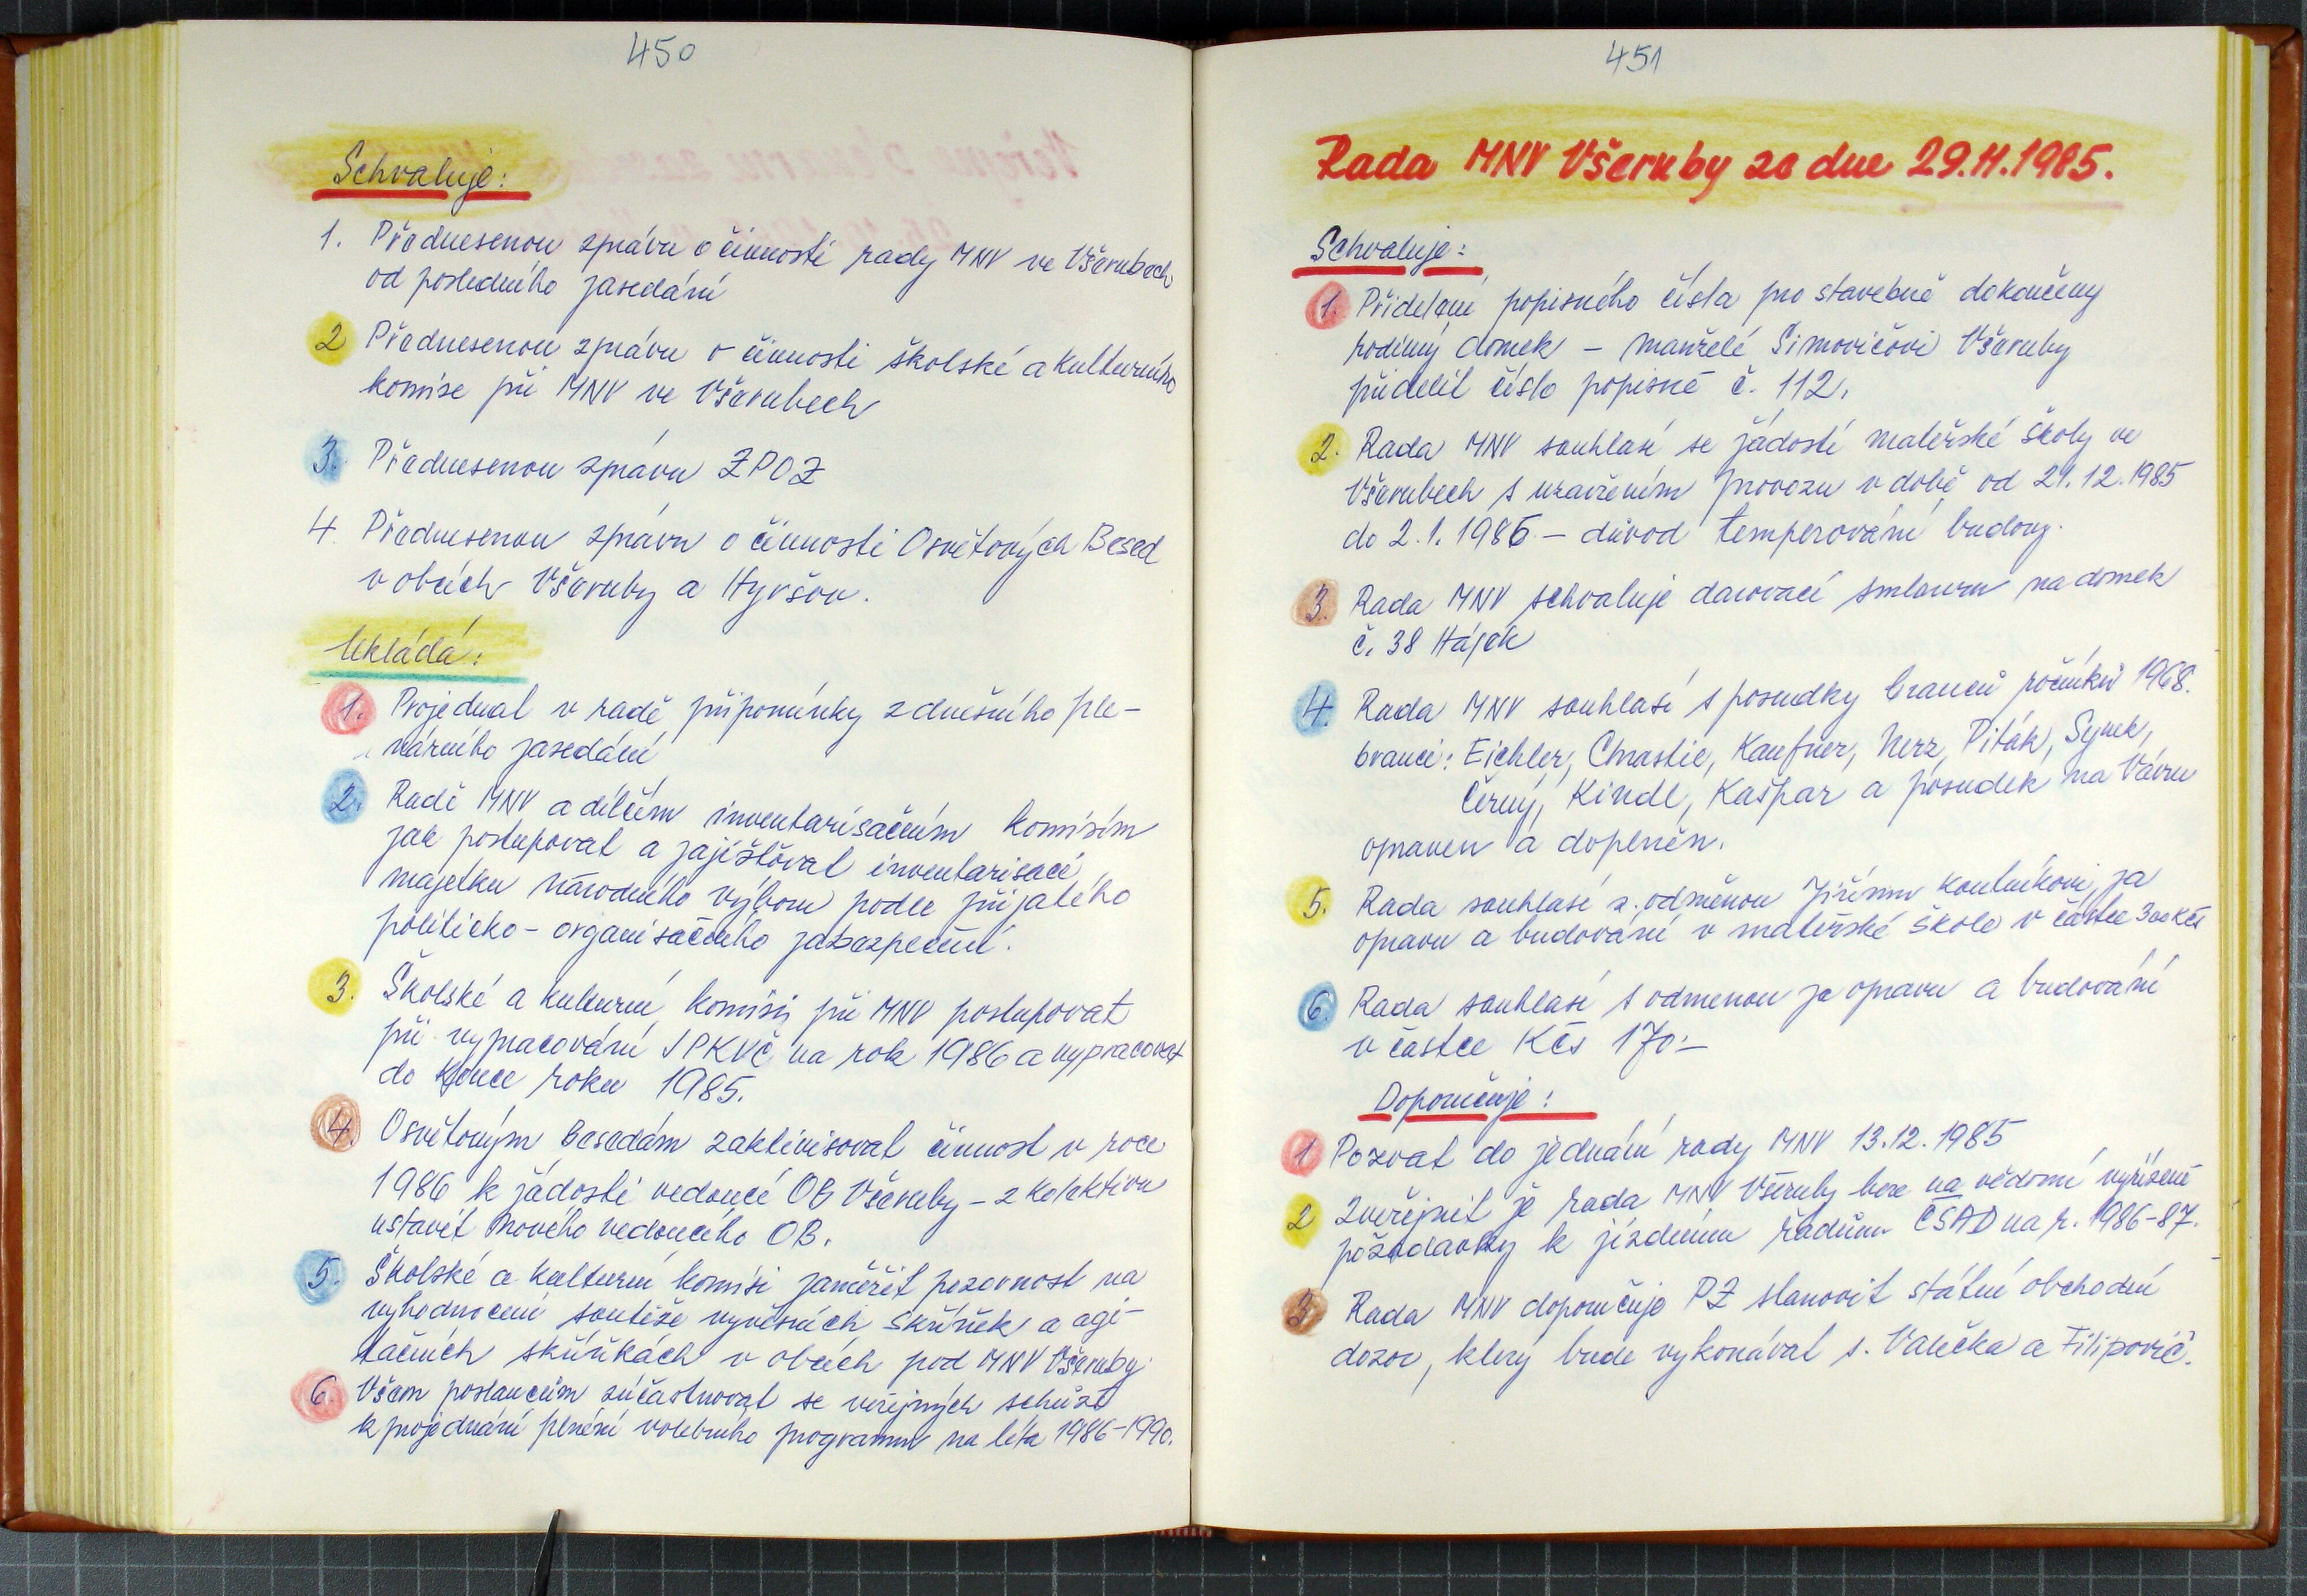 450
Schvaluje:
1. Přednesenou zprávu o činnosti rady MNV ve Všerubech
od posledního zasedání
2 Přednesenou zprávu o činnosti školské a kulturního
komise při MNV ve Všerubech
3. Přednesenou zprávu ZPOZ
4. Přednesenou zprávu o činnosti Osvětových Besed
v obcích Všeruby a Hyršov.
Ukládá:
1. Projednat v radě připomínky z dnešního ple-
nárního zasedání
2. Radě MNV a dílčím inventarisačním komisím
jak postupovat a zajišťovat inventarisaci
majetku národního výboru podle přijatého
politicko - organisačního zabezpečení.
3. Školské a kulturní komisi při MNV postupovat
při vypracování JPKVČ na rok 1986 a vypracovat
do konce roku 1985.
4. Osvětovým besedám zaktivisovat činnost v roce
1986 k žádosti vedoucí OB Všeruby - z kolektivu
ustavit nového vedoucího OB.
5. Školské a kulturní komisi zaměřit pozornost na
vyhodnocení soutěže vývěsních skříněk a agi-
tačních skříňkách v obcích pod MNV Všeruby.
6. Všem poslancům zúčastňovat se veřejných schůzí
k projednání plnění volebního programu na léta 1986-1990.
451
Rada MNV Všeruby ze dne 29.11.1985.
Schvaluje:
1. Přidelení popisného čísla pro stavebně dokončený
rodinný domek - manželé Simovičovi Všeruby
přidelit číslo popisné č. 112.
2. Rada MNV souhlasí se žádostí mateřské školy ve
Všerubech s uzavřením provozu v době od 21.12.1985
do 2.1.1986 - důvod temperování budovy.
3. Rada MNV schvaluje darovací smlouvu na domek
č. 38 Hájek
4. Rada MNV souhlasí s posudky branců ročníků 1968.
branci: Eichler, Chrastic, Kaufner, Nerz, Piták, Synek,
Černý, Kindl, Kašpar a posudek na Vávru
opraven a doplněn.
5. Rada souhlasí s odměnou Jiřímu Koutníkovi za
opravu a budování v mateřské škole v částce 300 Kčs
6. Rada souhlasí s odmenou za opravu a budování
v částce Kčs 170.-
Doporučuje:
1 Pozvat do jednání rady MNV 13.12.1985
2 Zveřejnit že rada MNV Všeruby bere na vědomí vyřízené
požadavky k jízdním řádům ČSAD na r. 1986-87.
3 Rada MNV doporučuje PZ stanovit státní obchodní
dozor, který bude vykonávat s. Valečka a Filipovič.